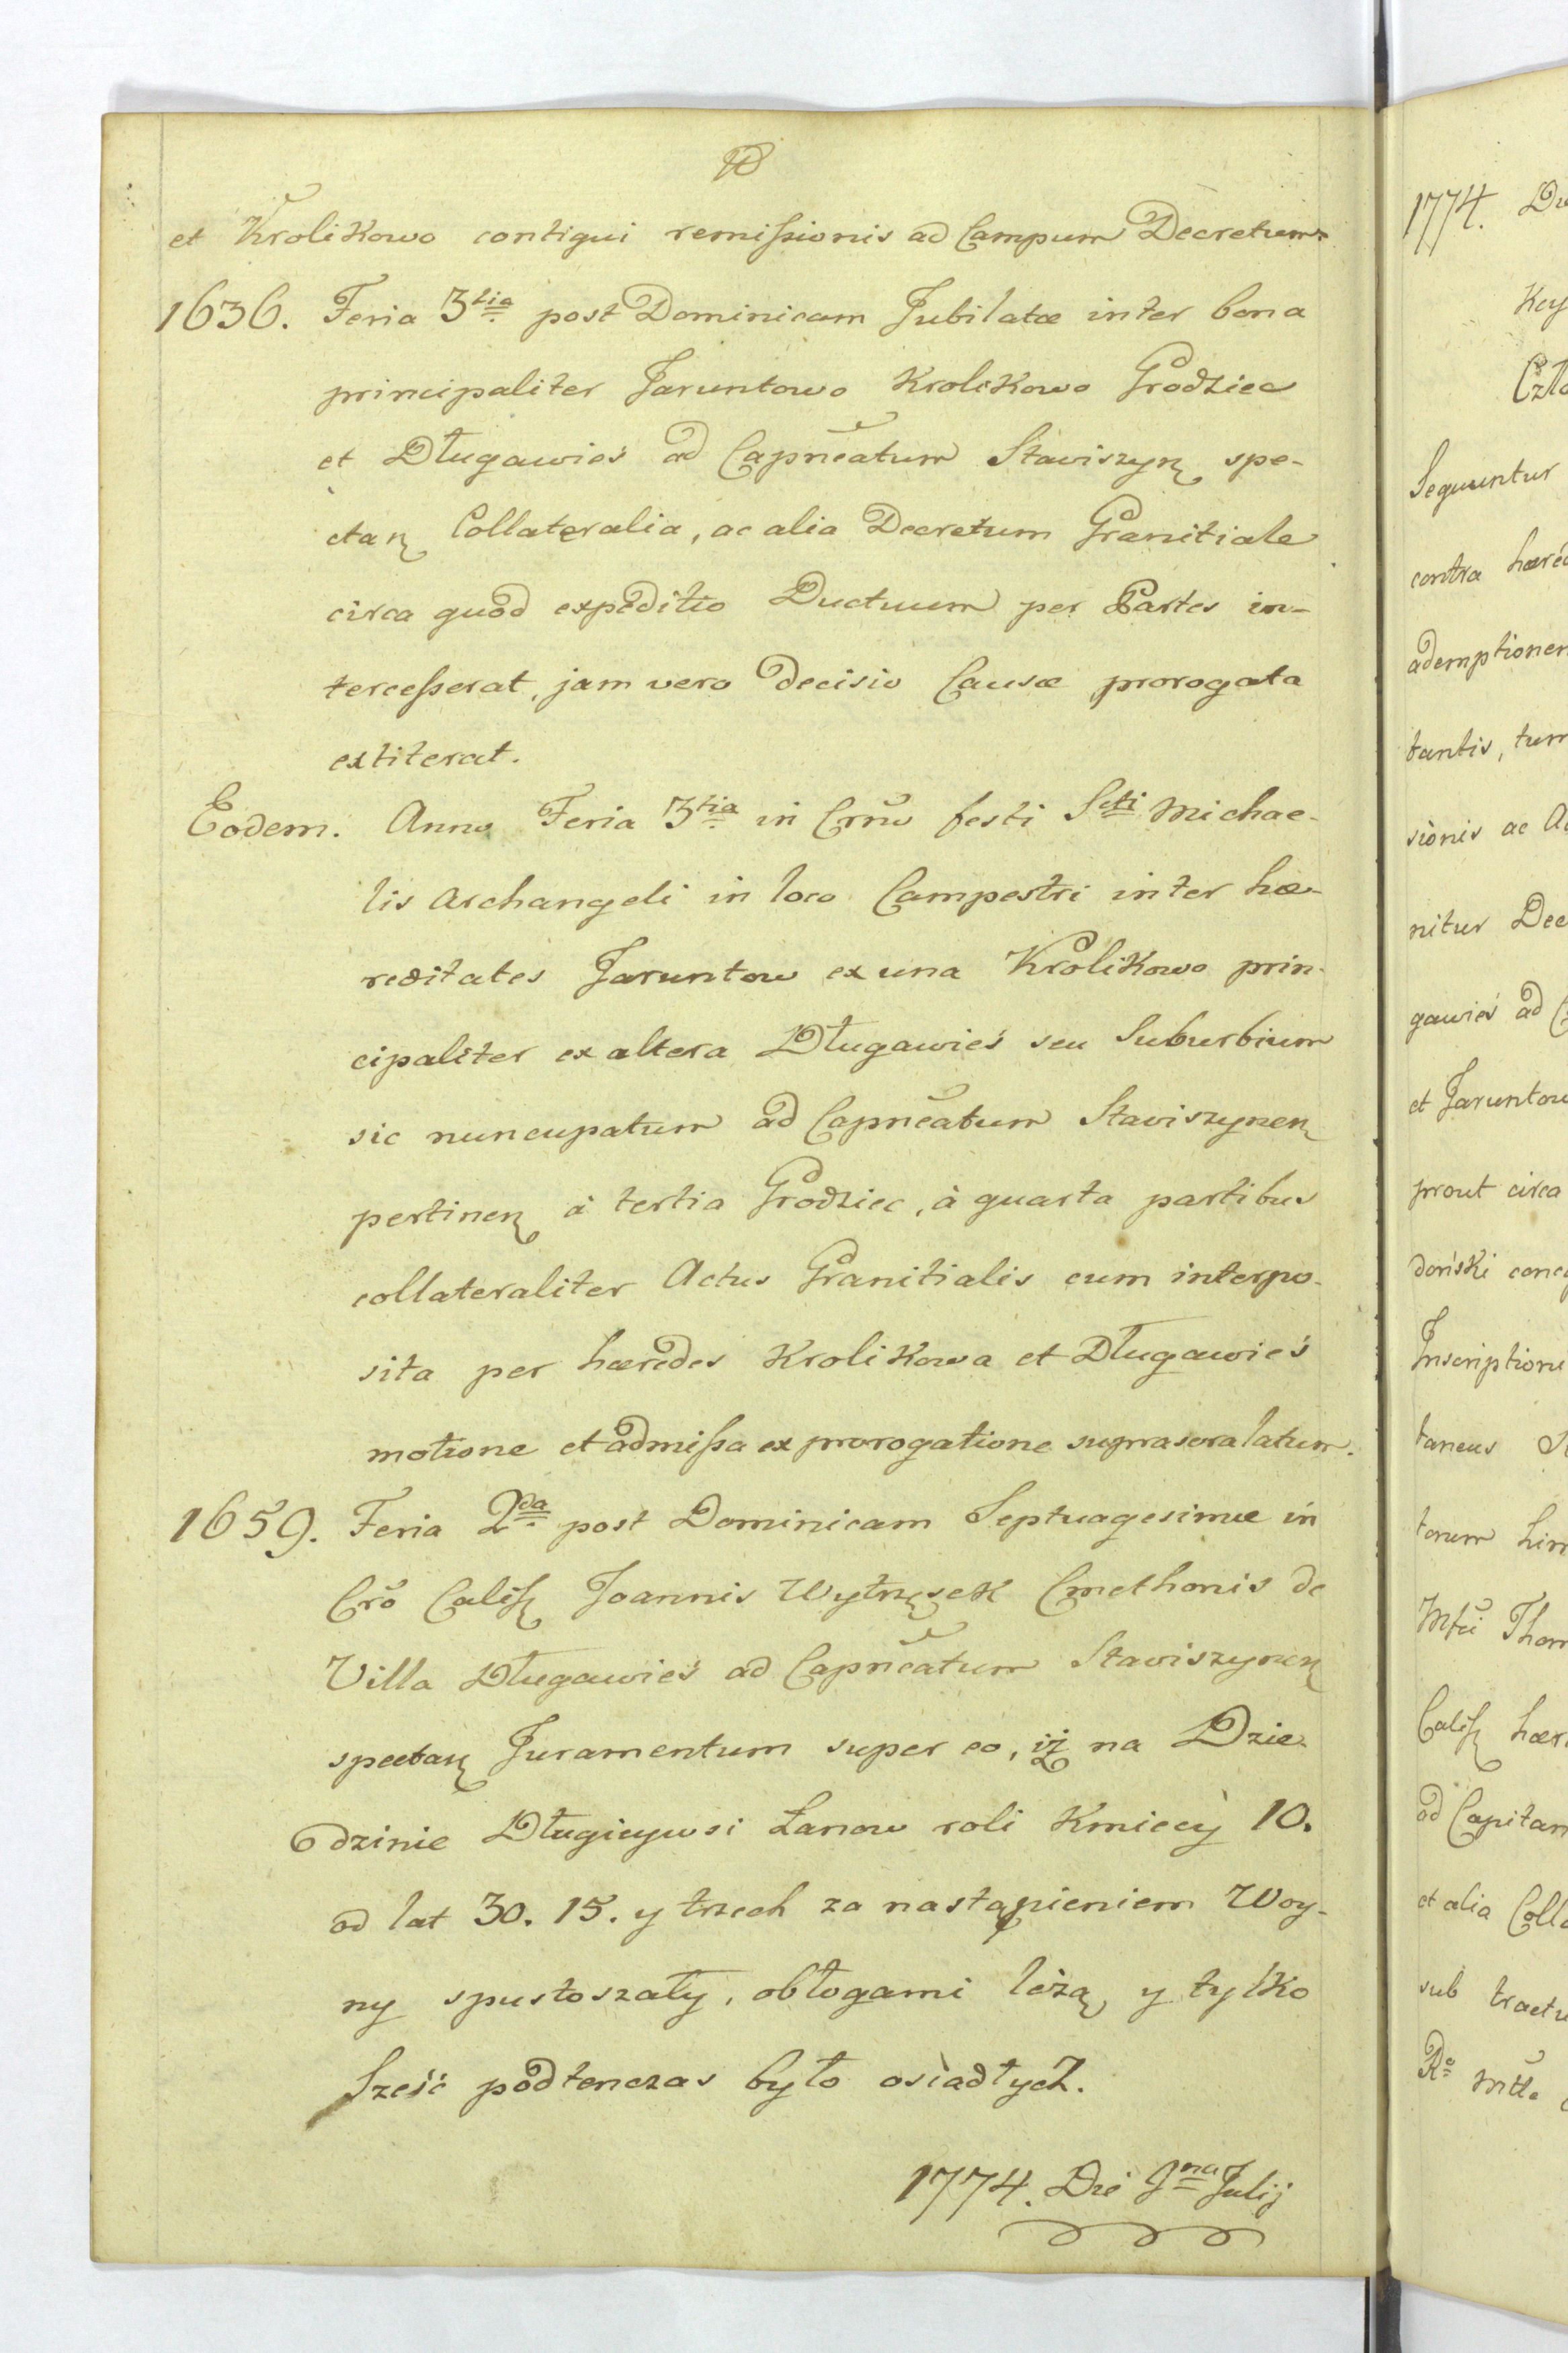 et Krolikowo contigui remissionis ad Campum Decretum.
1636. Feria 3tia post Dominicam Jubilatæ inter bona
principaliter Jaruntowo Krolikowo Grodziec
et Długawieś ad Capnēatum Stawiszyn spe-
ctan Collateralia, ac alia Decretum Granitiale
circa quod expeditio Ductuum per Partes in-
tercesserat, jam vero decisio Causæ prorogata
extiterat.
Eodem. Anno Feria 3tia in Crñō festi Scti Michae-
lis Archangeli in loco Campestri inter hæ-
reditates Jaruntow ex una Krolikowo prin-
cipaliter ex altera Długawieś seu Suburbium
sic nuncupatum ad Capnēatum Stawiszynen
pertinen à tertia Grodziec, à quarta partibus
collateraliter Actus Granitialis cum interpo-
sita per hæredes Krolikowa et Długawieś
motione et admissa ex prorogatione
1659. Feria 2da post Dominicam Septuagesimæ in
Crō Calisz Joannis Wytrzęsek Cmethonis de
Villa Długawieś ad Capnēatum Stawiszynen
spectan Juramentum super eo, iż na Dzie-
dzinie Długieywsi Łanow roli Kmiecy 10.
od lat 30. 15. y trzech za nastąpieniem Woy-
ny spustoszały, obłogami leżą y tylko
Sześć podtenczas było osiadłych.
1774. Die Julij
1774.
Sequuntur
contra
ademptionem
tantis, tum
sionis ac
nitur Dec
gawieś ad
et Jaruntow
prout circa
doński
Inscriptione
taneus
torum
Calisz
ad Capitan
et alia Colla
sub